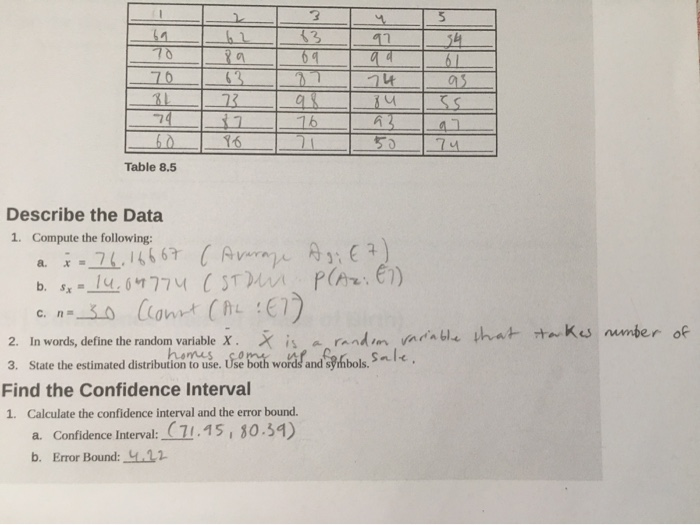 1 2 3 4 5
69 62 63 97 54
70 89 69 99 61
70 63 87 74 95
81 73 98 84 55
74 87 76 93 97
60 86 71 50 74
Table 8.5
Describe the Data
1. Compute the following:
a. x̄ = 76.16667 ( Average A2: E7)
b. sx = 14.04774 ( STDEV P(A2: E7)
c. n = 30 (count (A2 : E7)
2. In words, define the random variable X̄. X̄ is a random variable that takes number of
homes come up for sale.
3. State the estimated distribution to use. Use both words and symbols.
Find the Confidence Interval
1. Calculate the confidence interval and the error bound.
a. Confidence Interval: (71.95, 80.39)
b. Error Bound: 4.22